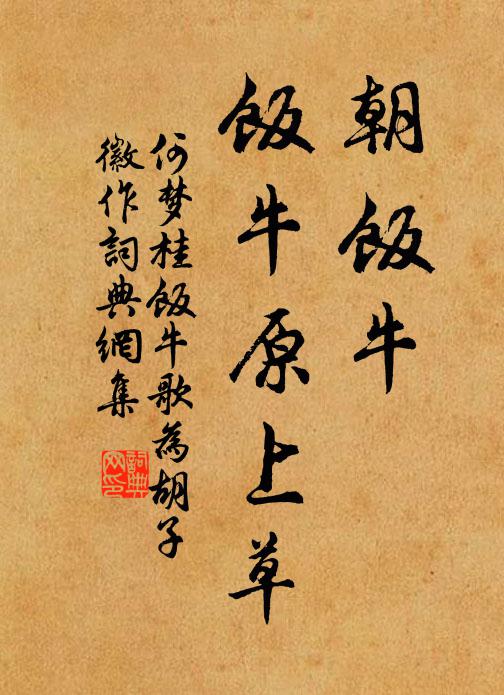 朝飯牛
飯牛原上草
何梦桂飯牛歌為胡子
徽作詞典網集
詞典网印